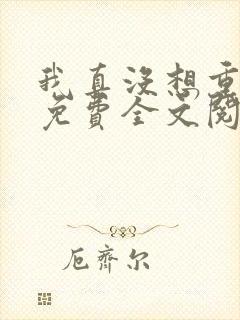 我真没想重
免費全文閱
厄齊尔